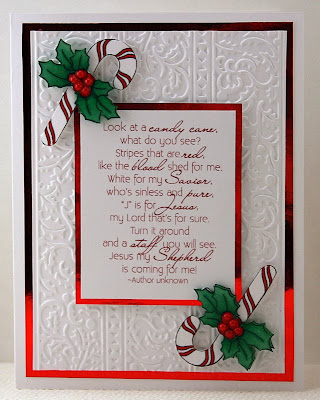 Look at a candy cane,
what do you see?
Stripes that are red,
like the blood shed for me.
White for my Savior,
who's sinless and pure,
"J" is for Jesus,
my Lord that's for sure.
Turn it around
and a staff you will see.
Jesus my Shepherd
is coming for me!
~Author unknown